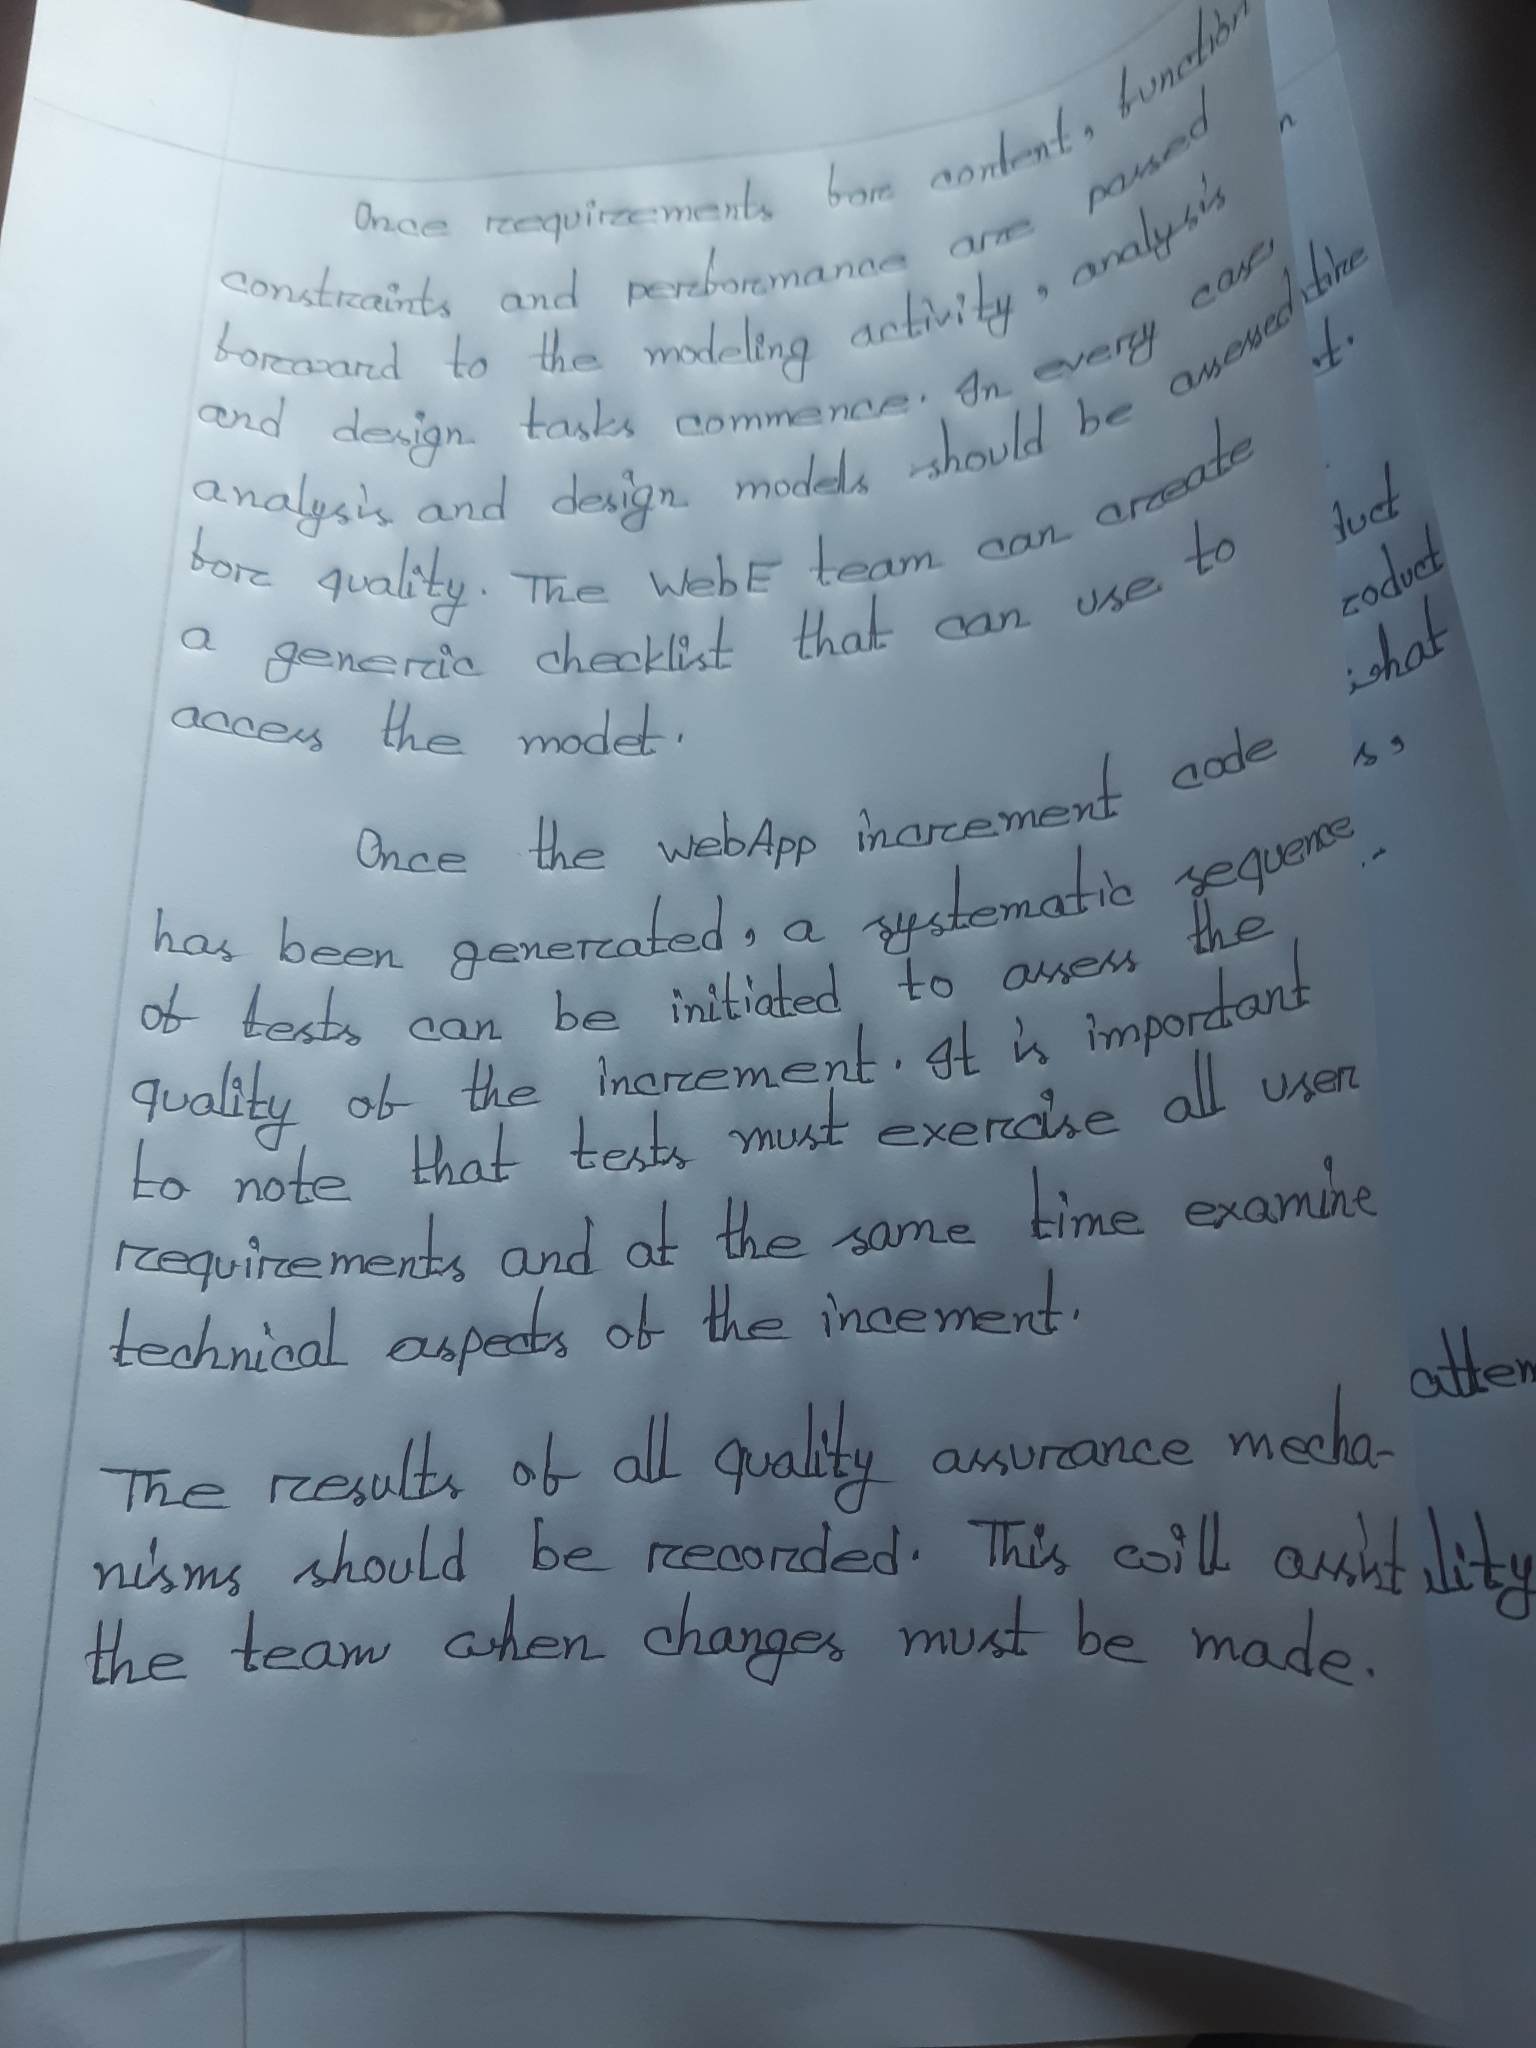 Once requirements for content, function
constraints and performance are passed
forward to the modeling activity, analysis
and design tasks commence. In every case,
analysis and design models should be assessed
for quality. The WebE team can create
a generic checklist that can use to
access the model.
Once the webApp increment code
has been generated, a systematic sequence
of tests can be initiated to assess the
quality of the increment. It is important
to note that tests must exercise all user
requirements and at the same time examine
technical aspects of the incement.
The results of all quality assurance mecha-
nisms should be recorded. This will assist
the team when changes must be made.